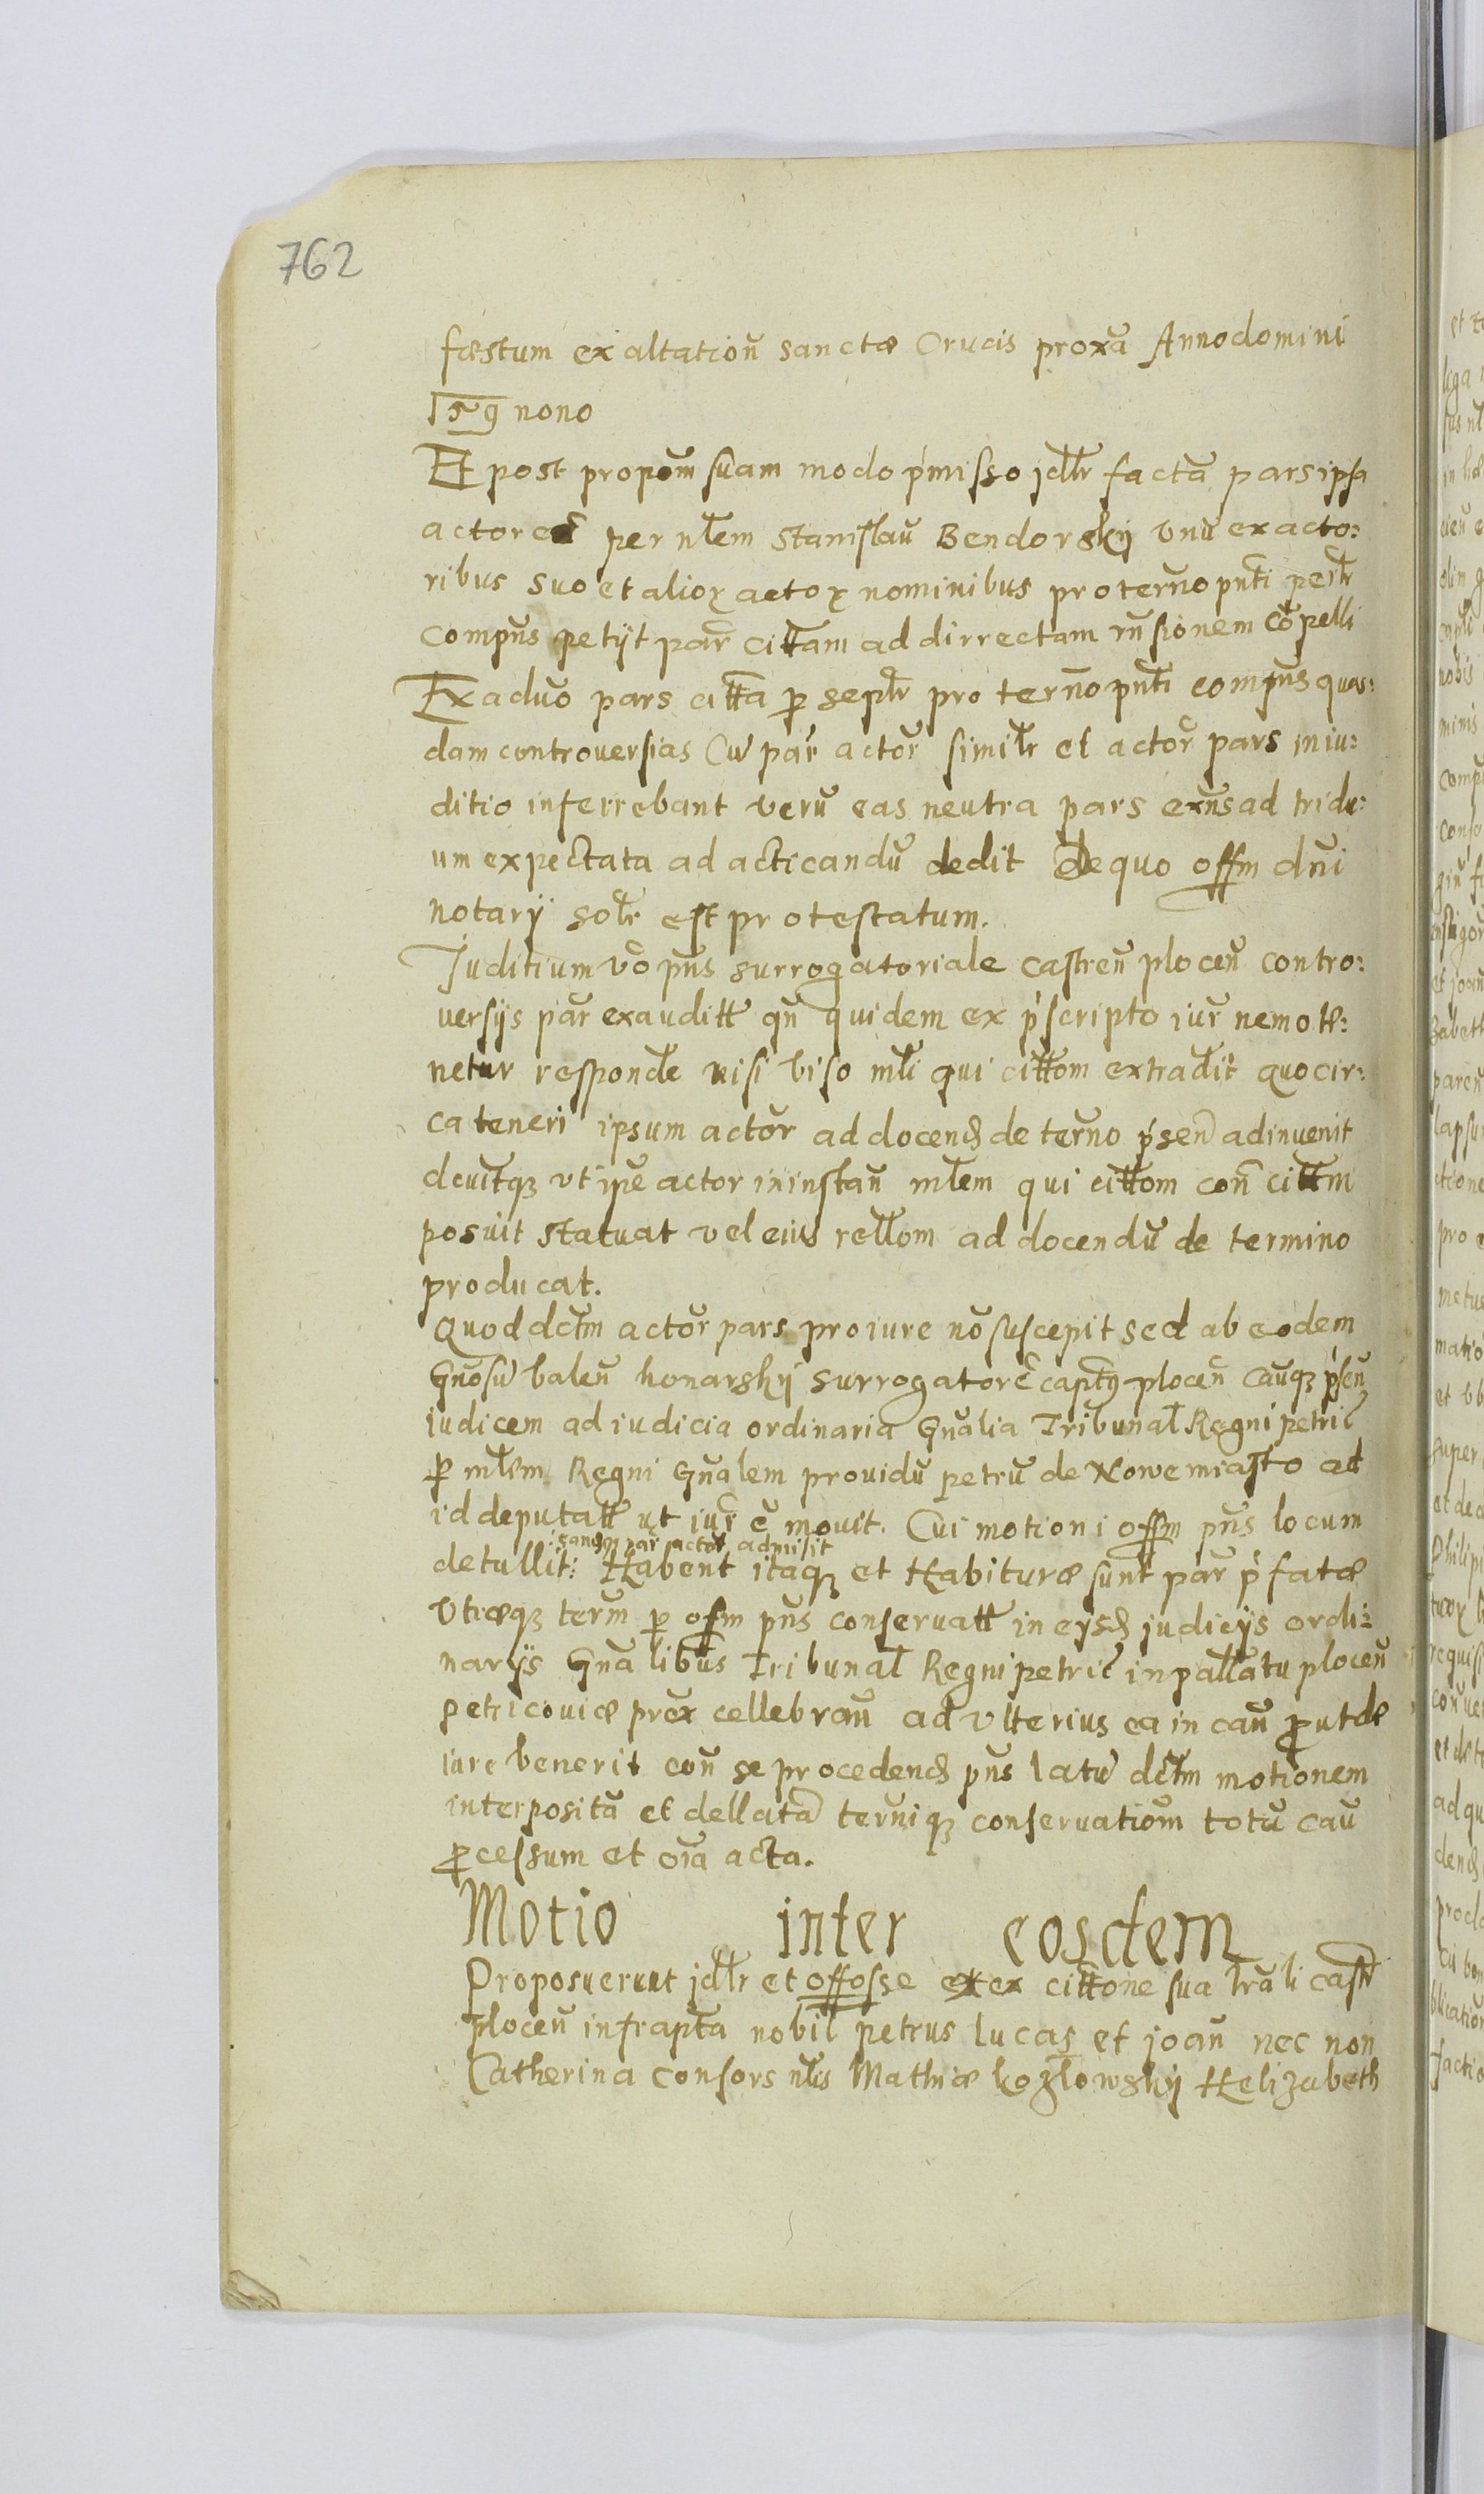 762
fæstum exaltatioñ sanctæ Crucis proxã Annodomini
159 nono
Et post propõm suam modo p'misso jdlr facta pars ipsa
actorea per nłem Stanislaũ Bendorskij vnũ ex acto:
ribus suo et alioꝝ actoꝝ nominibus pro terño pñti persłr
compñs petijt par cittam ad dirrectam rñsionem cõpelli
Ex aduõ pars citta ꝑ septr pro terño pñti compñs quas:
dam controuersias Cũ par actor similr et actor pars in iu:
ditio inferrebant verũ eas neutra pars exñs ad tridu:
um expectata ad acticandũ dedit De quo offm dñi
notarij solr est protestatum.
Juditium vo pñs surrogatoriale castreñ ploceñ contro:
uersijs par exauditt qñ quidem ex p'scripto iur nemo te:
netur respondẽ nisi viso młi qui cittom extradit quocir:
ca teneri ipsum actor ad docenđ de terño p'señ adinuenit
decuitqꝫ vt ipẽ actor in instañ młem qui cittom coñ cittm
posuit statuat vel eius rellom ad docendũ de termino
producat.
Quod dctm actor pars pro iure nõ suscepit sed ab eodem
Gnosũ Valeñ konarskij surrogatore captꝰ ploceñ cauqꝫ p'señ
iudicem ad iudicia ordinaria Gñalia Tribunal Regni petric
ꝑ młem Regni Gñalem prouidũ petrũ de Nowemiasto ad
id deputatt ut iur ẽ mouit. Cui motioni offm pñs locum
par actor admisit
detullit: Habent itaqꝫ et Habituræ sunt par p'fatæ
Vtræqꝫ term ꝑ offm pñs conseruatt in eysđ judicijs ordi:
narijs Gñalibus Tribunal Regni petric in pallatu ploceñ
petricouiæ prox cellebrañ ad vlterius ea in cau ꝓut de
iure venerit coñ se procedenđ pñs latũ dctm motionem
interpositã et dellatã terniqꝫ conseruatiom totũ cau
ꝓcessum et oia acta.
Motio inter eosdem
Proposuerunt jdlr et offosse ex ex cittone sua lrali castr
ploceñ infrapta nobil petrus lucas et joañ nec non
Catherina consors nlis Mathiæ kozłowskij Helizabeth